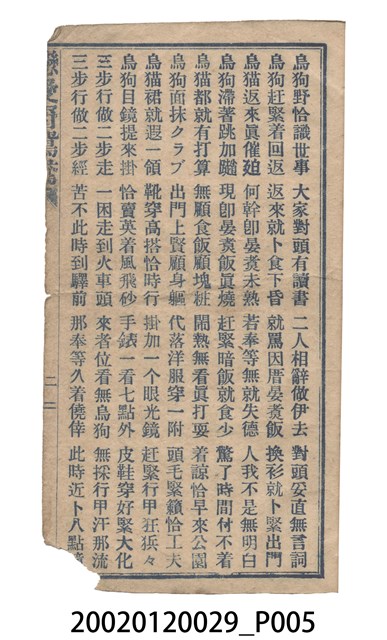 烏狗野恰識世事 大家對頭有讀書 二人相辭做伊去 對頭妥直無言詞
烏狗赶緊着回返 返來就卜食下昏 就罵因厝晏煑飯 換衫就卜緊出門
烏猫返來眞催廹 何幹卽晏煑未熟 若奉等無就失德 人我不是無明白
烏狗滯著跳加 現卽晏煑飯眞燒 赶緊暗飯就食少 驚了時間付不着
烏猫都就有打算 無顧食飯顧塊粧 鬧熱無看眞打耍 着諒恰早來公園
烏狗面抹クラブ 出門上賢顧身軀 代落洋服穿一附 頭毛緊籟恰工夫
烏猫裙就遐一領 靴穿高搭恰時行 掛加一个眼光鏡 赶緊行甲狂狂々
烏狗目鏡提來掛 恰賣英着風飛砂 手錶一看七點外 皮鞋穿好緊大化
三步行做二步走 一困走到火車頭 來者位看無烏狗 無採行甲汗那流
三步行做二步經 苦不此時到驛前 那奉等久着僥倖 此時近卜八點
二
20020120029_P005